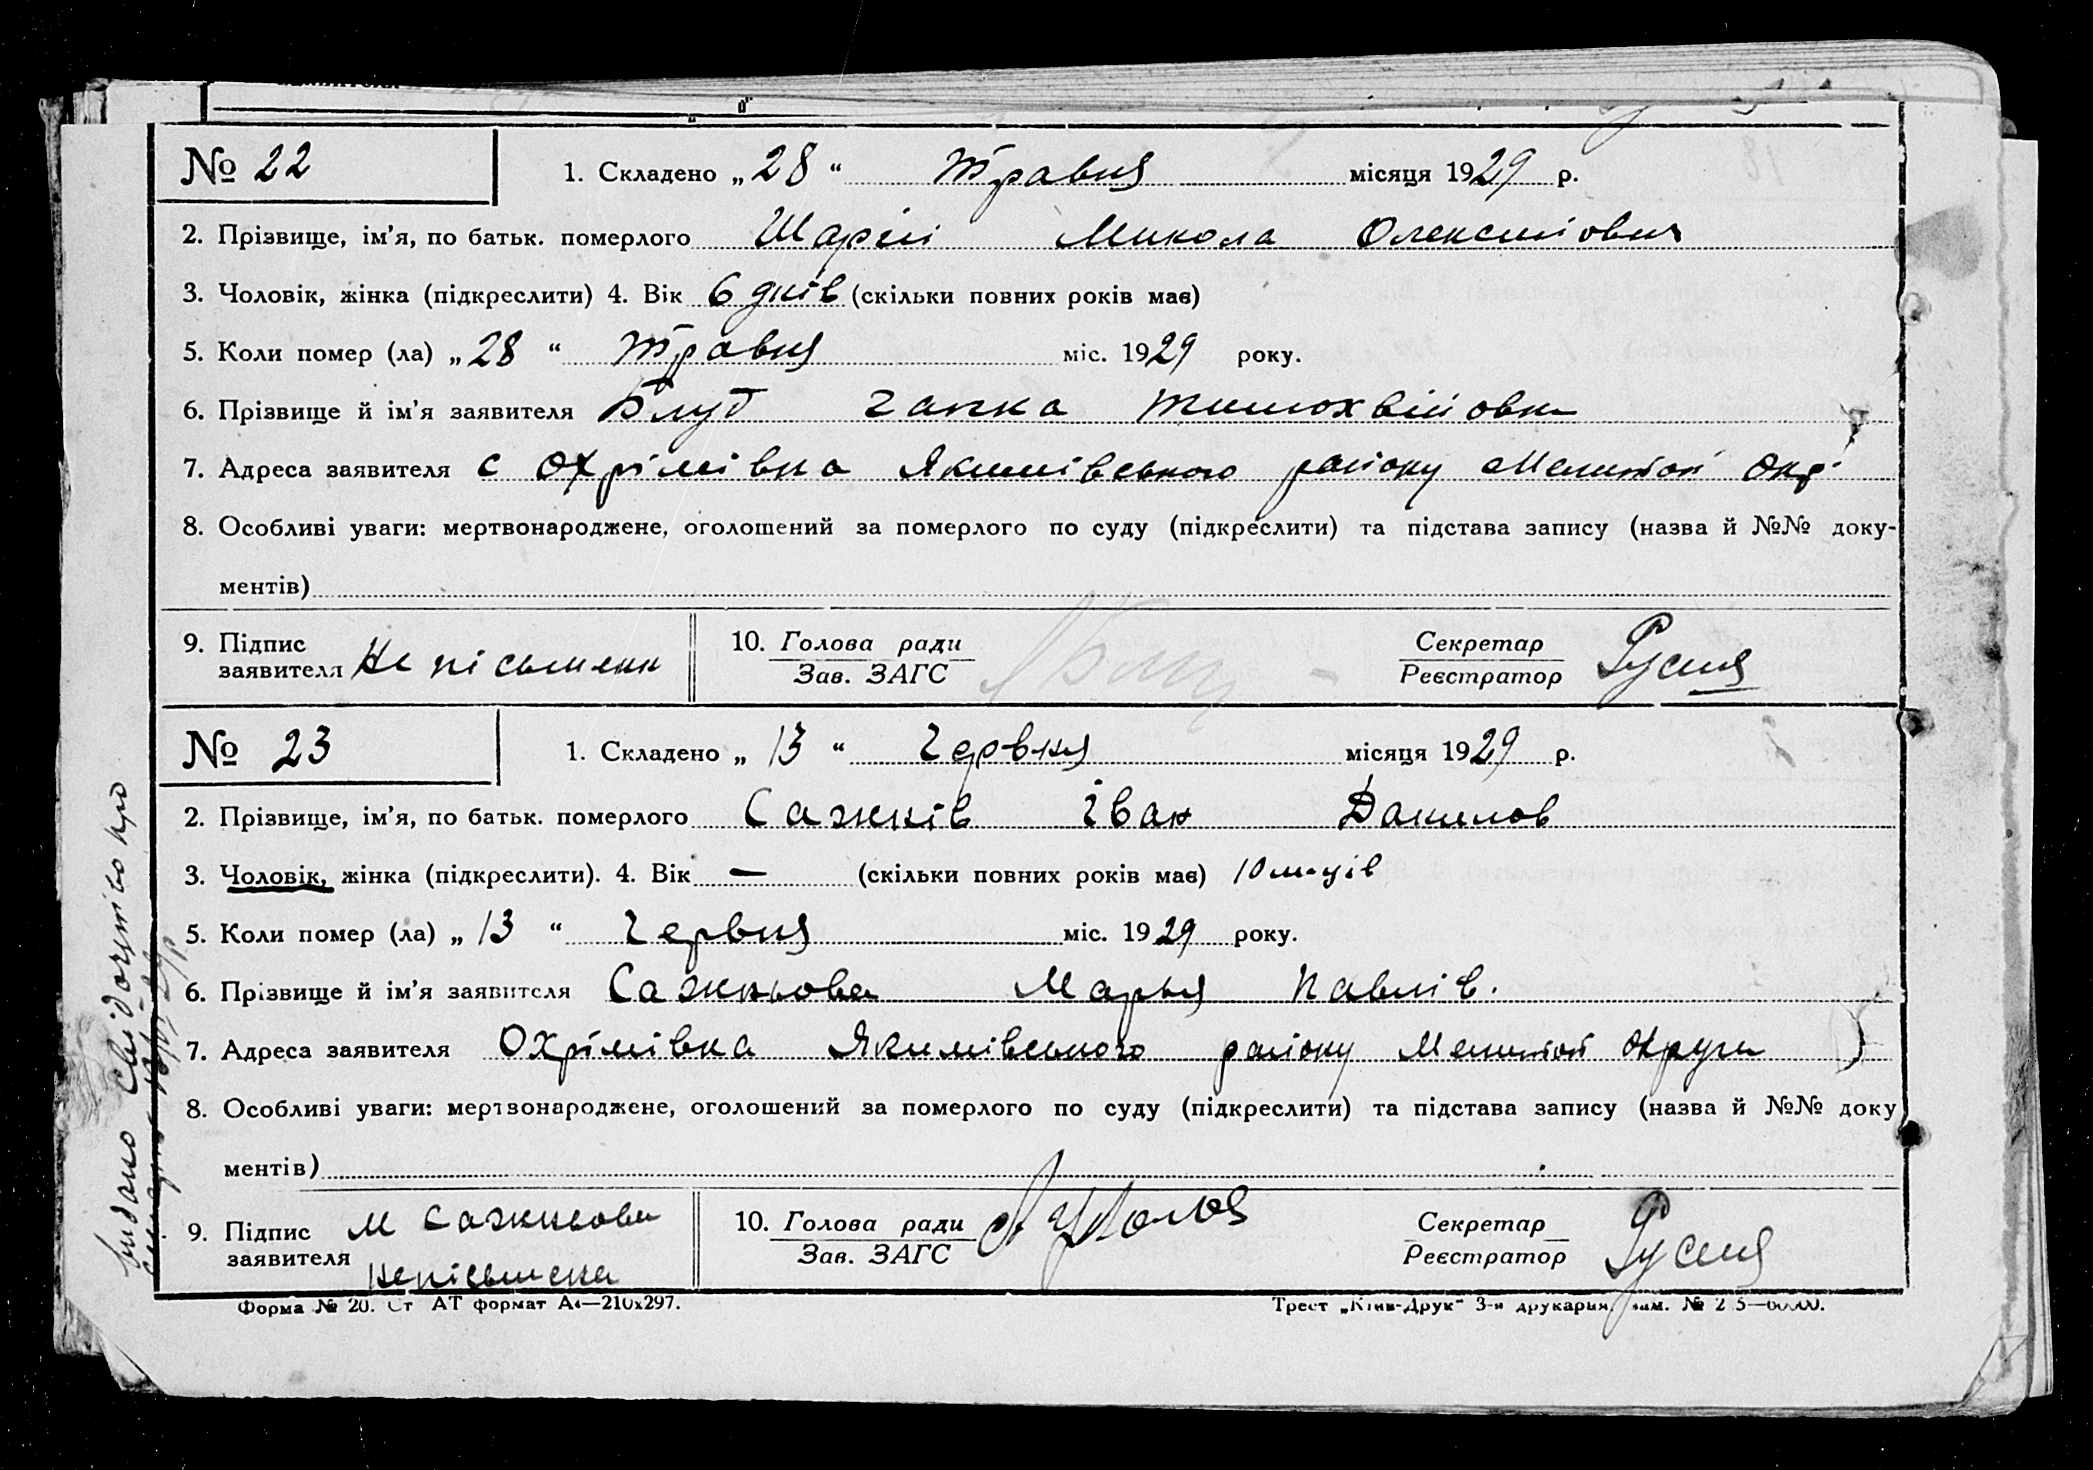 № 22 1. Складено „28“ травня місяця 1929 р.
2. Прізвище, ім'я, по батьк. померлого Шарій Микола Олексійович
3. Чоловік, жінка (підкреслити) 4. Вік 6 днів (скільки повних років має)
5. Коли помер (ла) „28“ травня міс. 1929 року.
6. Прізвище й ім'я заявителя Блуд Ганка Тимохвійовна
7. Адреса заявителя с Охрімівка Якимівського району Мелитоп Окр.
8. Особливі уваги: мертвонароджене, оголошений за померлого по суду (підкреслити) та підстава запису (назва й №№ доку-
ментів)
9. Підпис заявителя Не пісьмени
10. Голова ради
Зав. ЗАГС
Секретар
Реєстратор
№ 23 1. Складено „13“ Червня місяця 1929 р.
2. Прізвище, ім'я, по батьк. померлого Сажнів Іван Данилов
3. Чоловік, жінка (підкреслити). 4. Вік — (скільки повних років має) 10 м-ців
5. Коли помер (ла) „13“ Червня міс. 1929 року.
6. Прізвище й ім'я заявителя Сажньова Марья Павлів.
7. Адреса заявителя Охрімівка Якимівського району Мелитоп Округи
8. Особливі уваги: мертвонароджене, оголошений за померлого по суду (підкреслити) та підстава запису (назва й №№ доку
ментів)
9. Підпис заявителя М Сажньова
непісьмена
10. Голова ради
Зав. ЗАГС
Секретар
Реєстратор
Форма № 20. Ст АТ формат А4—210x297.
Трест „Київ-Друк“ 3-я друкарня,
Видано свідоцтво про